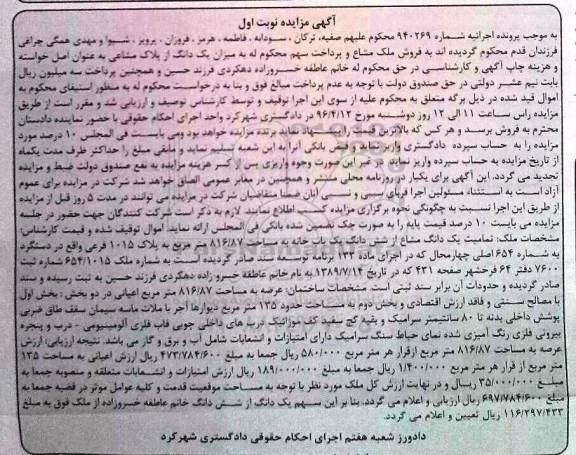 آگهی مزایده نوبت اول
به موجب پرونده اجرائیه شماره ۹۴۰۲۶۹ محکوم علیهم صفیه، ترکان، سودابه، فاطمه، هرمز، فروزان، پرویز، شیوا و مهدی همگی چراغی
فرزندان قدم محکوم گردیده اند به فروش ملک مشاع و پرداخت سهم محکوم له به میزان یک دانگ از پلاک مشاعی به عنوان اصل خواسته
و هزینه چاپ آگهی و کارشناسی در حق محکوم له خانم عاطفه خسروزاده دهکردی فرزند حسین و همچنین پرداخت سه میلیون ریال
بابت نیم عشر دولتی در حق صندوق دولت با توجه به عدم پرداخت مبالغ فوق و بنا به درخواست محکوم له به منظور استیفای محکوم به
اموال قید شده در ذیل برگه متعلق به محکوم علیه از سوی این اجرا توقیف و توسط کارشناس توصیف و ارزیابی شد و مقرر است از طریق
مزایده راس ساعت ۱۱ الی ۱۲ روز دوشنبه مورخ ۹۶/۴/۱۲ در دادگستری شهرکرد واحد اجرای احکام حقوقی با حضور نماینده دادستان
محترم به فروش برسد و هر کس که بالاترین قیمت را پیشنهاد نماید برنده مزایده خواهد بود ومی بایست فی المجلس ۱۰ درصد مورد
مزایده را به حساب سپرده دادگستری واریز نماید و فیش بانکی آنرا به این شعبه تسلیم نماید و مابقی مبلغ را حداکثر ظرف مدت یکماه
از تاریخ مزایده به حساب سپرده واریز نماید در غیر این صورت وجوه واریزی پس از کسر هزینه مزایده به نفع صندوق دولت ضبط و مزایده
تجدید می گردد. این آگهی برای یکبار در روزنامه محلی منتشر و همچنین در معابر عمومی الصاق خواهد شد شرکت در مزایده برای عموم
آزاد است به استثناء مسئولین اجرا قربای سببی و نسبی آنان ضمنا متقاضیان شرکت در مزایده می توانند در مدت ۵ روز قبل از مزایده
از طریق این اجرا نسبت به چگونگی نحوه برگزاری مزایده کسب اطلاع نمایند. لازم به ذکر است شرکت کنندگان جهت حضور در جلسه
مزایده می بایست ۱۰ درصد قیمت پایه را به صورت چک تضمین شده بانکی فی المجلس ارائه نمایند. اموال توقیف شده و قیمت کارشناس:
مشخصات ملک: تمامیت یک دانگ مشاع از شش دانگ یک باب خانه به مساحت ۸۱۶/۸۷ متر مربع به پلاک ۱۰۱۵ فرعی واقع در دستگرد
به شماره ۶۵۴ اصلی چهارمحال که در اجرای ماده ۱۳۳ برنامه توسعه سند صادر گردیده است به شماره ملک ۶۵۴/۱۰۱۵ شماره ثبت
۷۶۰۰ دفتر ۶۴ فرخشهر صفحه ۴۳۱ که در تاریخ ۱۳۸۹/۷/۱۴ به نام خانم عاطفه خسرو زاده دهکردی فرزند حسین به ثبت رسیده و سند
صادر گردیده و حدودات آن برابر سند ثبتی است. مشخصات ساختمان: عرصه به مساحت ۸۱۶/۸۷ متر مربع اعیانی در دو بخش: بخش اول
با مصالح سنتی و فاقد ارزش اقتصادی و بخش دوم به مساحت حدود ۱۳۵ متر مربع دیوارها آجر با ملات ماسه سیمان سقف طاق ضربی
پوشش داخلی بدنه تا ۸۰ سانتیمتر سرامیک و بقیه گچ سفید کف موزائیک درب های داخلی چوبی قاب فلزی آلومینیومی - درب و پنجره
بیرونی فلزی رنگ آمیزی شده نمای حیاط سنگ سرامیک دارای امتیازات و انشعابات شامل آب و برق و گاز می باشد. نتیجه ارزیابی: ارزش
عرصه به مساحت ۸۱۶/۸۷ متر مربع ازقرار هر متر مربع ۵۸۰/۰۰۰ ریال جمعا به مبلغ ۴۷۳/۷۸۴/۶۰۰ ریال ارزش اعیانی به مساحت ۱۳۵
متر مربع از قرار هر متر مربع ۱/۴۰۰/۰۰۰ ریال جمعا به مبلغ ۱۸۹/۰۰۰/۰۰۰ ریال ارزش امتیازات و انشعابات متعلقه و منصوبه جمعا به
مبلغ ۳۵/۰۰۰/۰۰۰ ریال و در نهایت ارزش کل ملک مورد نظر با توجه به مساحت موقعیت قدمت و کلیه عوامل موثر در قضیه جمعا به
مبلغ ۶۹۷/۷۸۴/۶۰۰ ریال ارزیابی و اعلام می گردد. بنا بر این سهم یک دانگ از شش دانگ خانم عاطفه خسروزاده از ملک فوق به مبلغ
۱۱۶/۲۹۷/۴۳۳ ریال تعیین و اعلام می گردد.
دادورز شعبه هفتم اجرای احکام حقوقی دادگستری شهرکرد